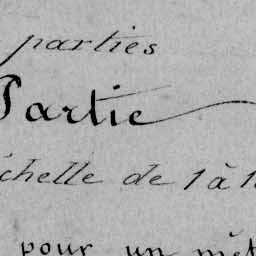 parties
Partie
échelle de 1 à 1
pour un mèt